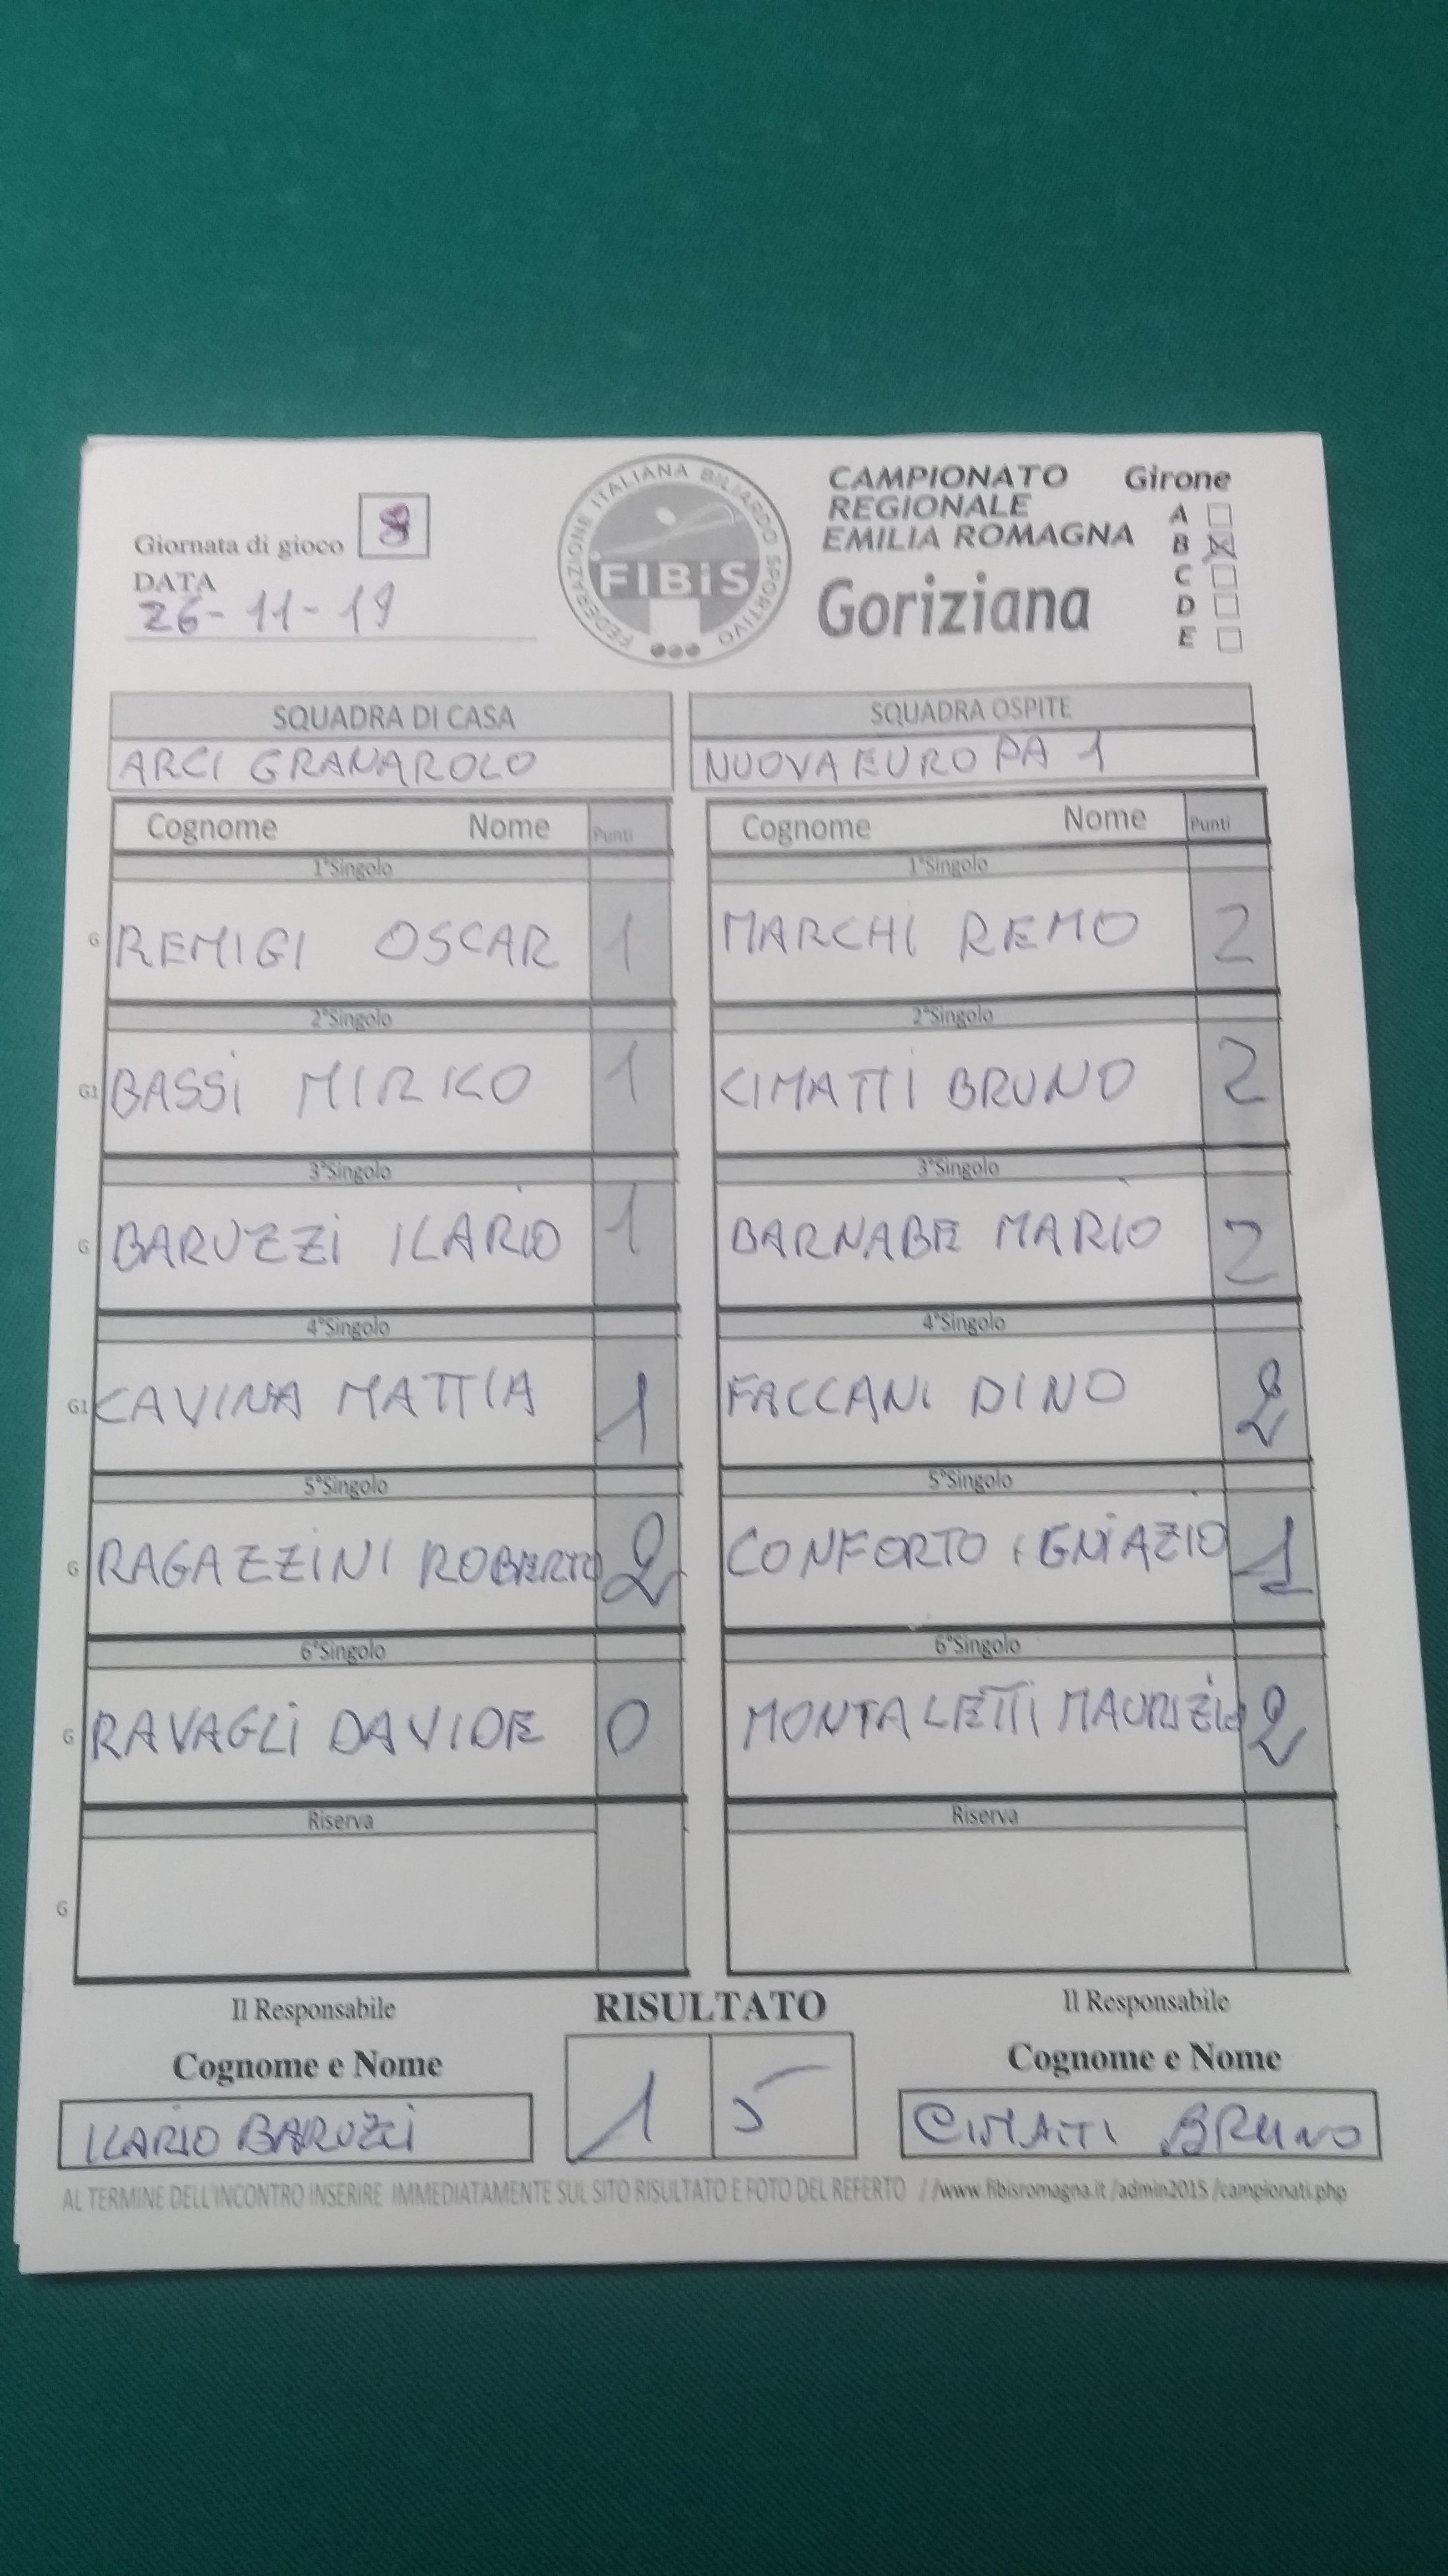 CAMPIONATO Girone
REGIONALE
EMILIA ROMAGNA
A
B
C
D
E
Goriziana
FEDERAZIONE ITALIANA BILIARDO SPORTIVO
FIBiS
Giornata di gioco
DATA
26-11-19
SQUADRA DI CASA
ARCI GRANAROLO
SQUADRA OSPITE
NUOVA EUROPA 1
Cognome Nome Punti
Cognome Nome Punti
1°Singolo
1°Singolo
G REMIGI OSCAR 1
MARCHI REMO 2
2°Singolo
2°Singolo
G1 BASSI MIRKO 1
CIMATTI BRUNO 2
3°Singolo
3°Singolo
G BARUZZI ILARIO 1
BARNABE MARIO 2
4°Singolo
4°Singolo
G1 CAVINA MATTIA 1
FACCANI DINO 2
5°Singolo
5°Singolo
G RAGAZZINI ROBERTO 2
CONFORTO 1
6°Singolo
6°Singolo
G RAVAGLI DAVIDE 0
MONTALETTI MAURIZIO 2
Riserva
Riserva
G
Il Responsabile
RISULTATO
Il Responsabile
Cognome e Nome
Cognome e Nome
ILARIO BARUZZI
1 5
CIMATTI BRUNO
AL TERMINE DELL'INCONTRO INSERIRE IMMEDIATAMENTE SUL SITO RISULTATO E FOTO DEL REFERTO / /www.fibisromagna.it /admin2015 /campionati.php